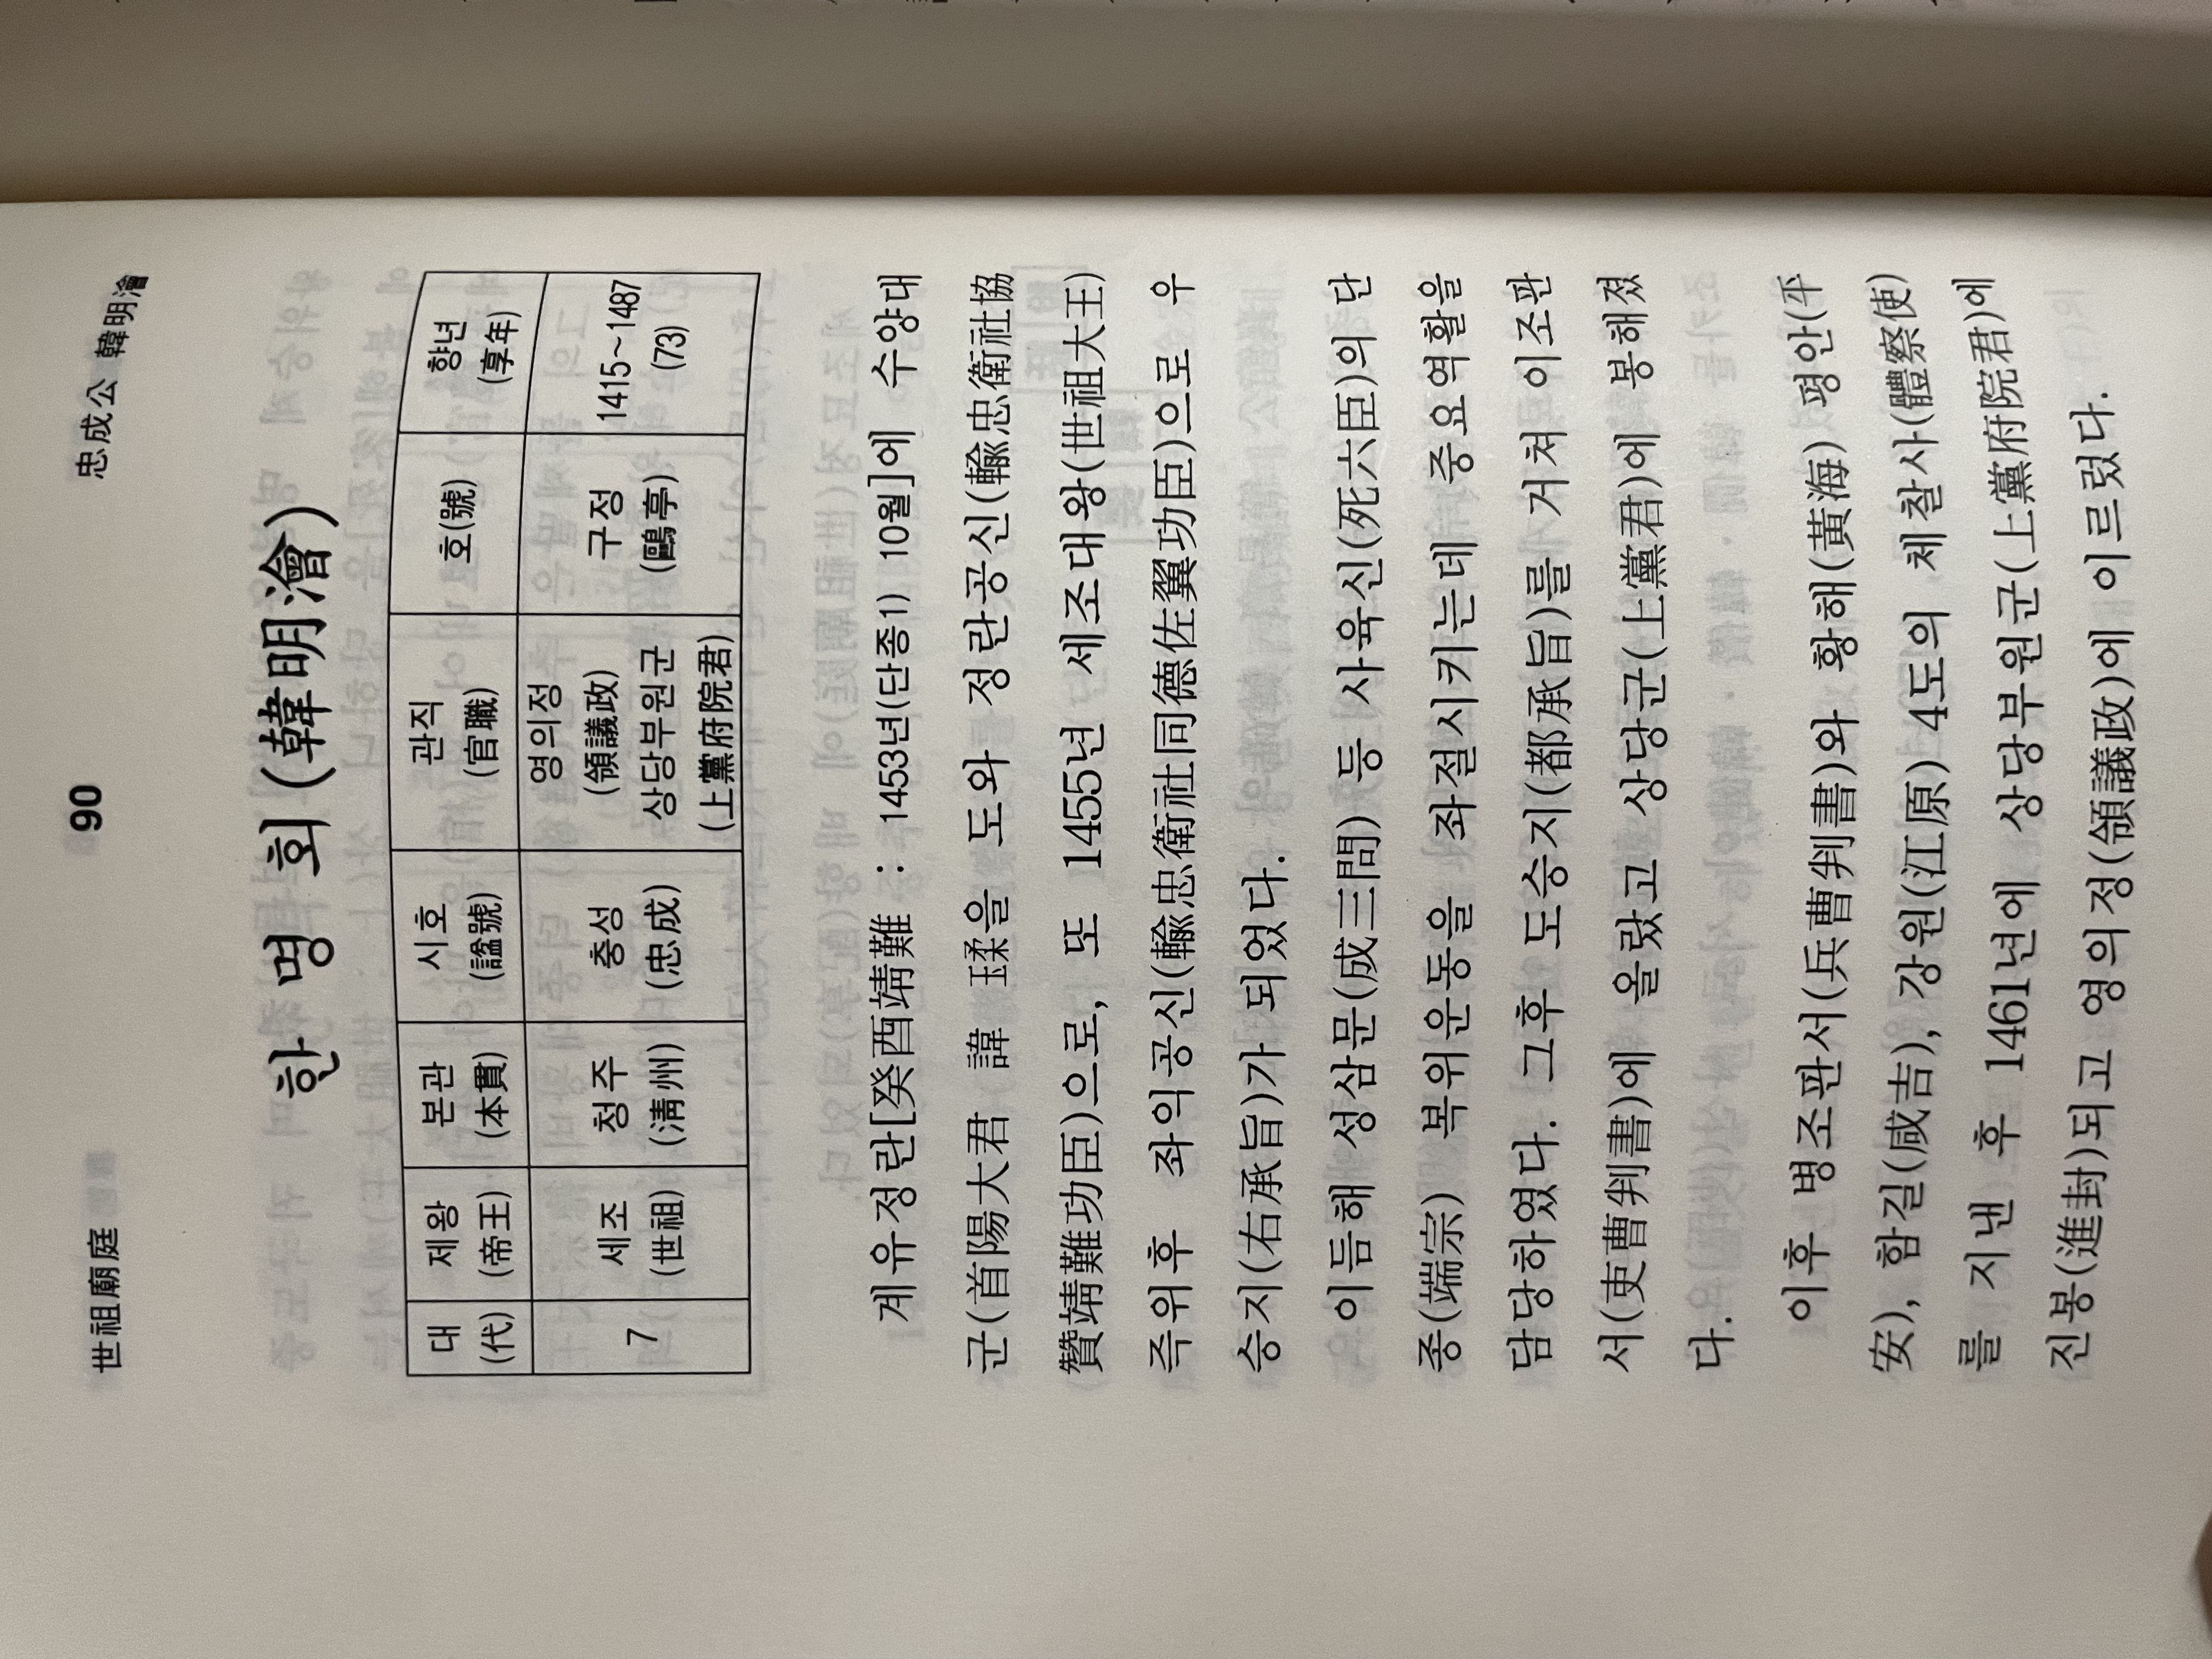 世祖廟庭 90 忠成公 韓明澮
한 명 회 (韓明澮)
대 제왕 본관 시호 관직 호(號) 향년
(代) (帝王) (本貫) (諡號) (官職) (享年)
7 세조 청주 충성 영의정 구정 1415~1487
(世祖) (淸州) (忠成) (領議政) (鷗亭) (73)
상당부원군
(上黨府院君)
계유정란[癸酉靖難 : 1453년(단종1) 10월]에 수양대
군(首陽大君 諱 瑈을 도와 정란공신(輸忠衛社協
贊靖難功臣)으로, 또 1455년 세조대왕(世祖大王)
즉위후 좌익공신(輸忠衛社同德佐翼功臣)으로 우
승지(右承旨)가 되었다.
이듬해 성삼문(成三問)등 사육신(死六臣)의 단
종(端宗) 복위운동을 좌절시키는데 중요역활을
담당하였다. 그후 도승지(都承旨)를 거쳐 이조판
서(吏曹判書)에 올랐고 상당군(上黨君)에 봉해졌
다.
이후 병조판서(兵曹判書)와 황해(黃海) 평안(平
安), 함길(咸吉), 강원(江原) 4도의 체찰사(體察使)
를 지낸 후 1461년에 상당부원군(上黨府院君)에
진봉(進封)되고 영의정(領議政)에 이르렀다.